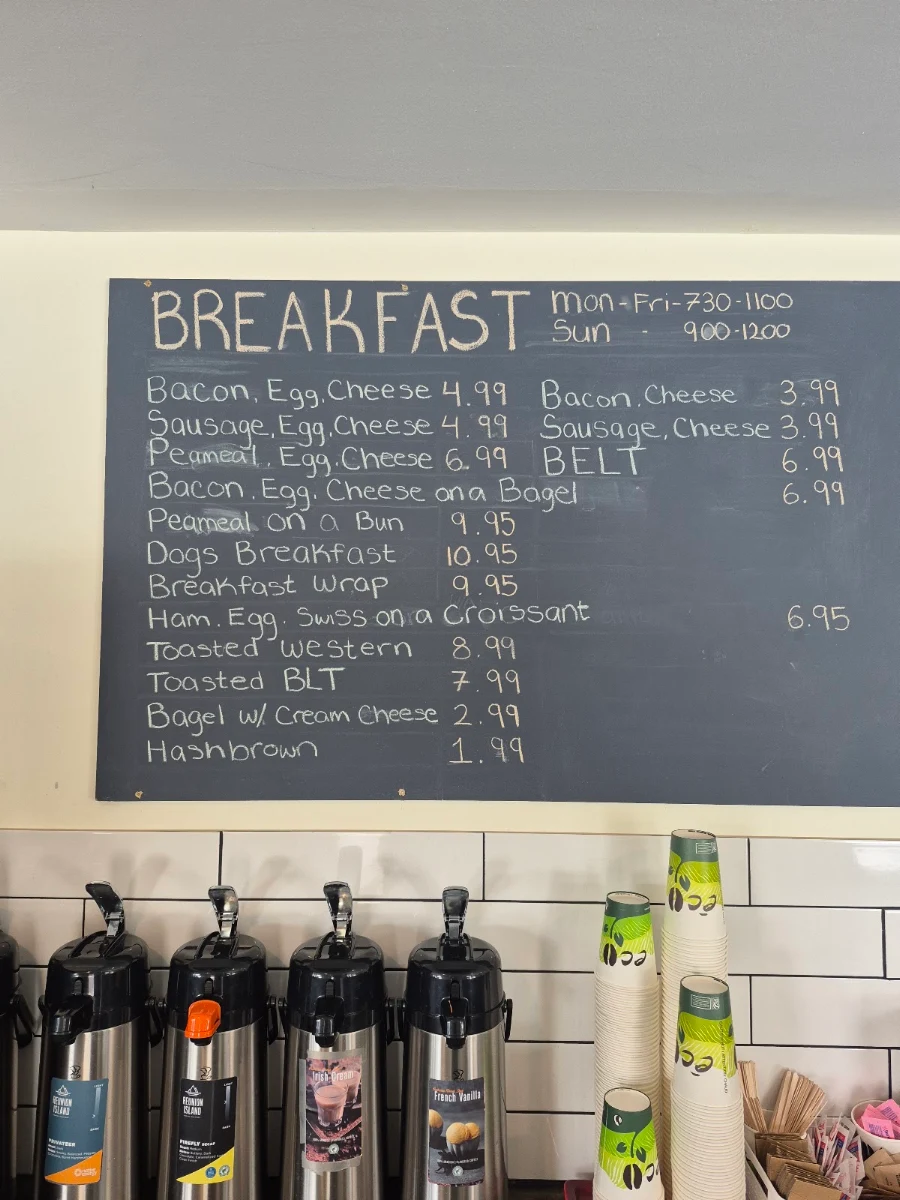 BREAKFAST Mon-Fri-730-1100
Sun - 900-1200
Bacon, Egg, Cheese 4.99 Bacon, Cheese 3.99
Sausage, Egg, Cheese 4.99 Sausage, Cheese 3.99
Peameal, Egg, Cheese 6.99 BELT 6.99
Bacon, Egg, Cheese on a Bagel 6.99
Peameal on a Bun 9.95
Dogs Breakfast 10.95
Breakfast Wrap 9.95
Ham, Egg, Swiss on a Croissant 6.95
Toasted Western 8.99
Toasted BLT 7.99
Bagel w/ Cream Cheese 2.99
Hashbrown 1.99
eco
eco
eco
eco
REUNION ISLAND
PRIVATEER
REUNION ISLAND
FIREFLY
Irish Cream
French Vanilla